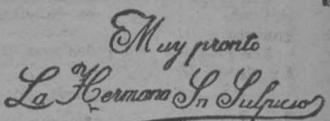 Muy pronto
La Hermana Sn Sulpicio